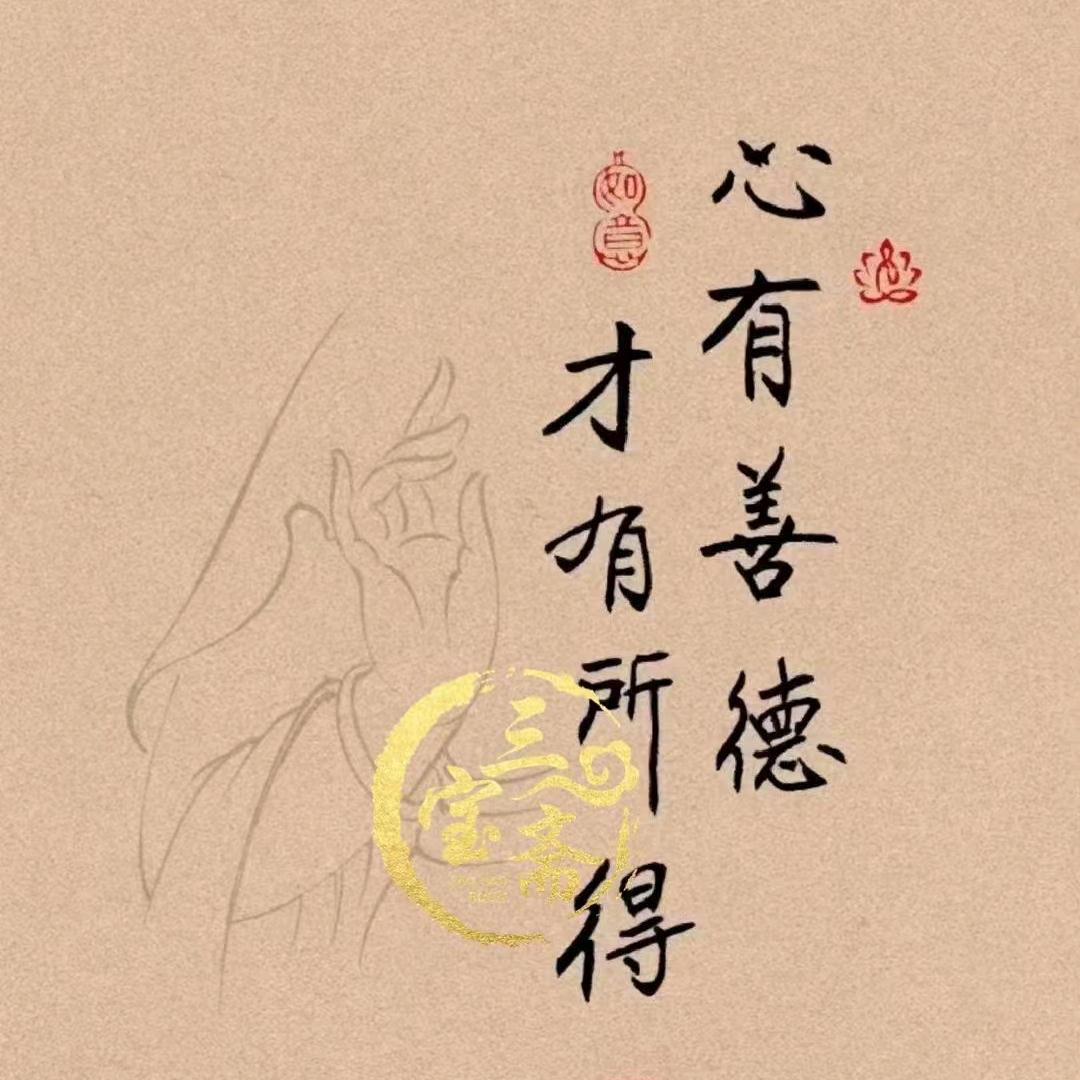 心有善德
如意
才有所得
三宝斋